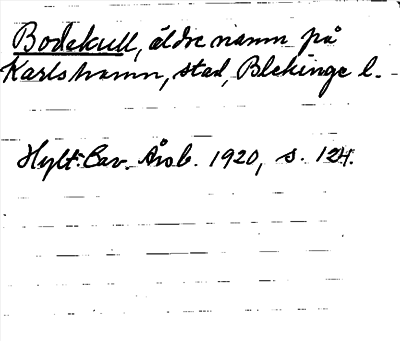 Bodekull, äldre namn på
Karlshamn, stad, Blekinge l. -
Hylt.-Cav. Årsb. 1920, s. 124.